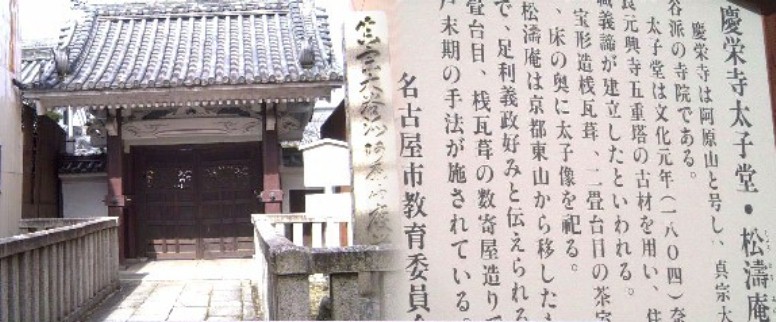 慶栄寺太子堂・松濤庵
慶栄寺は阿原山と号し、真宗大
谷派の寺院である。
太子堂は文化元年(一八〇四)奈
良元興寺五重塔の古材を用い、住
職義諦が建立したといわれる。
宝形造桟瓦葺、二畳台目の茶室
、床の奥に太子像を祀る。
松濤庵は京都東山から移したも
で、足利義政好みと伝えられる
畳台目、桟瓦葺の数寄屋造りで
戸末期の手法が施されている。
名古屋市教育委員
真宗大谷派